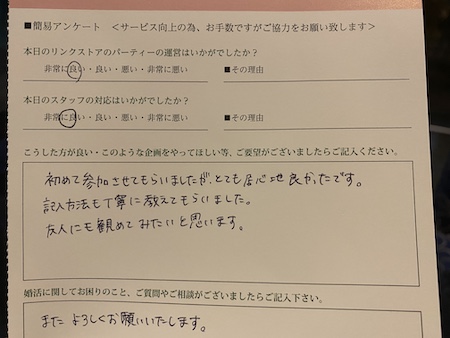 ■簡易アンケート　＜サービス向上の為、お手数ですがご協力をお願い致します＞
本日のリンクストアのパーティーの運営はいかがでしたか？
非常に良い・良い・悪い・非常に悪い　■その理由
本日のスタッフの対応はいかがでしたか？
非常に良い・良い・悪い・非常に悪い　■その理由
こうした方が良い・このような企画をやってほしい等、ご要望がございましたらご記入ください。
初めて参加させてもらいましたが、とても居心地良かったです。
記入方法も丁寧に教えてもらいました。
友人にも観めてみたいと思います。
婚活に関してお困りのこと、ご質問やご相談がございましたらご記入下さい。
また よろしくお願いいたします。